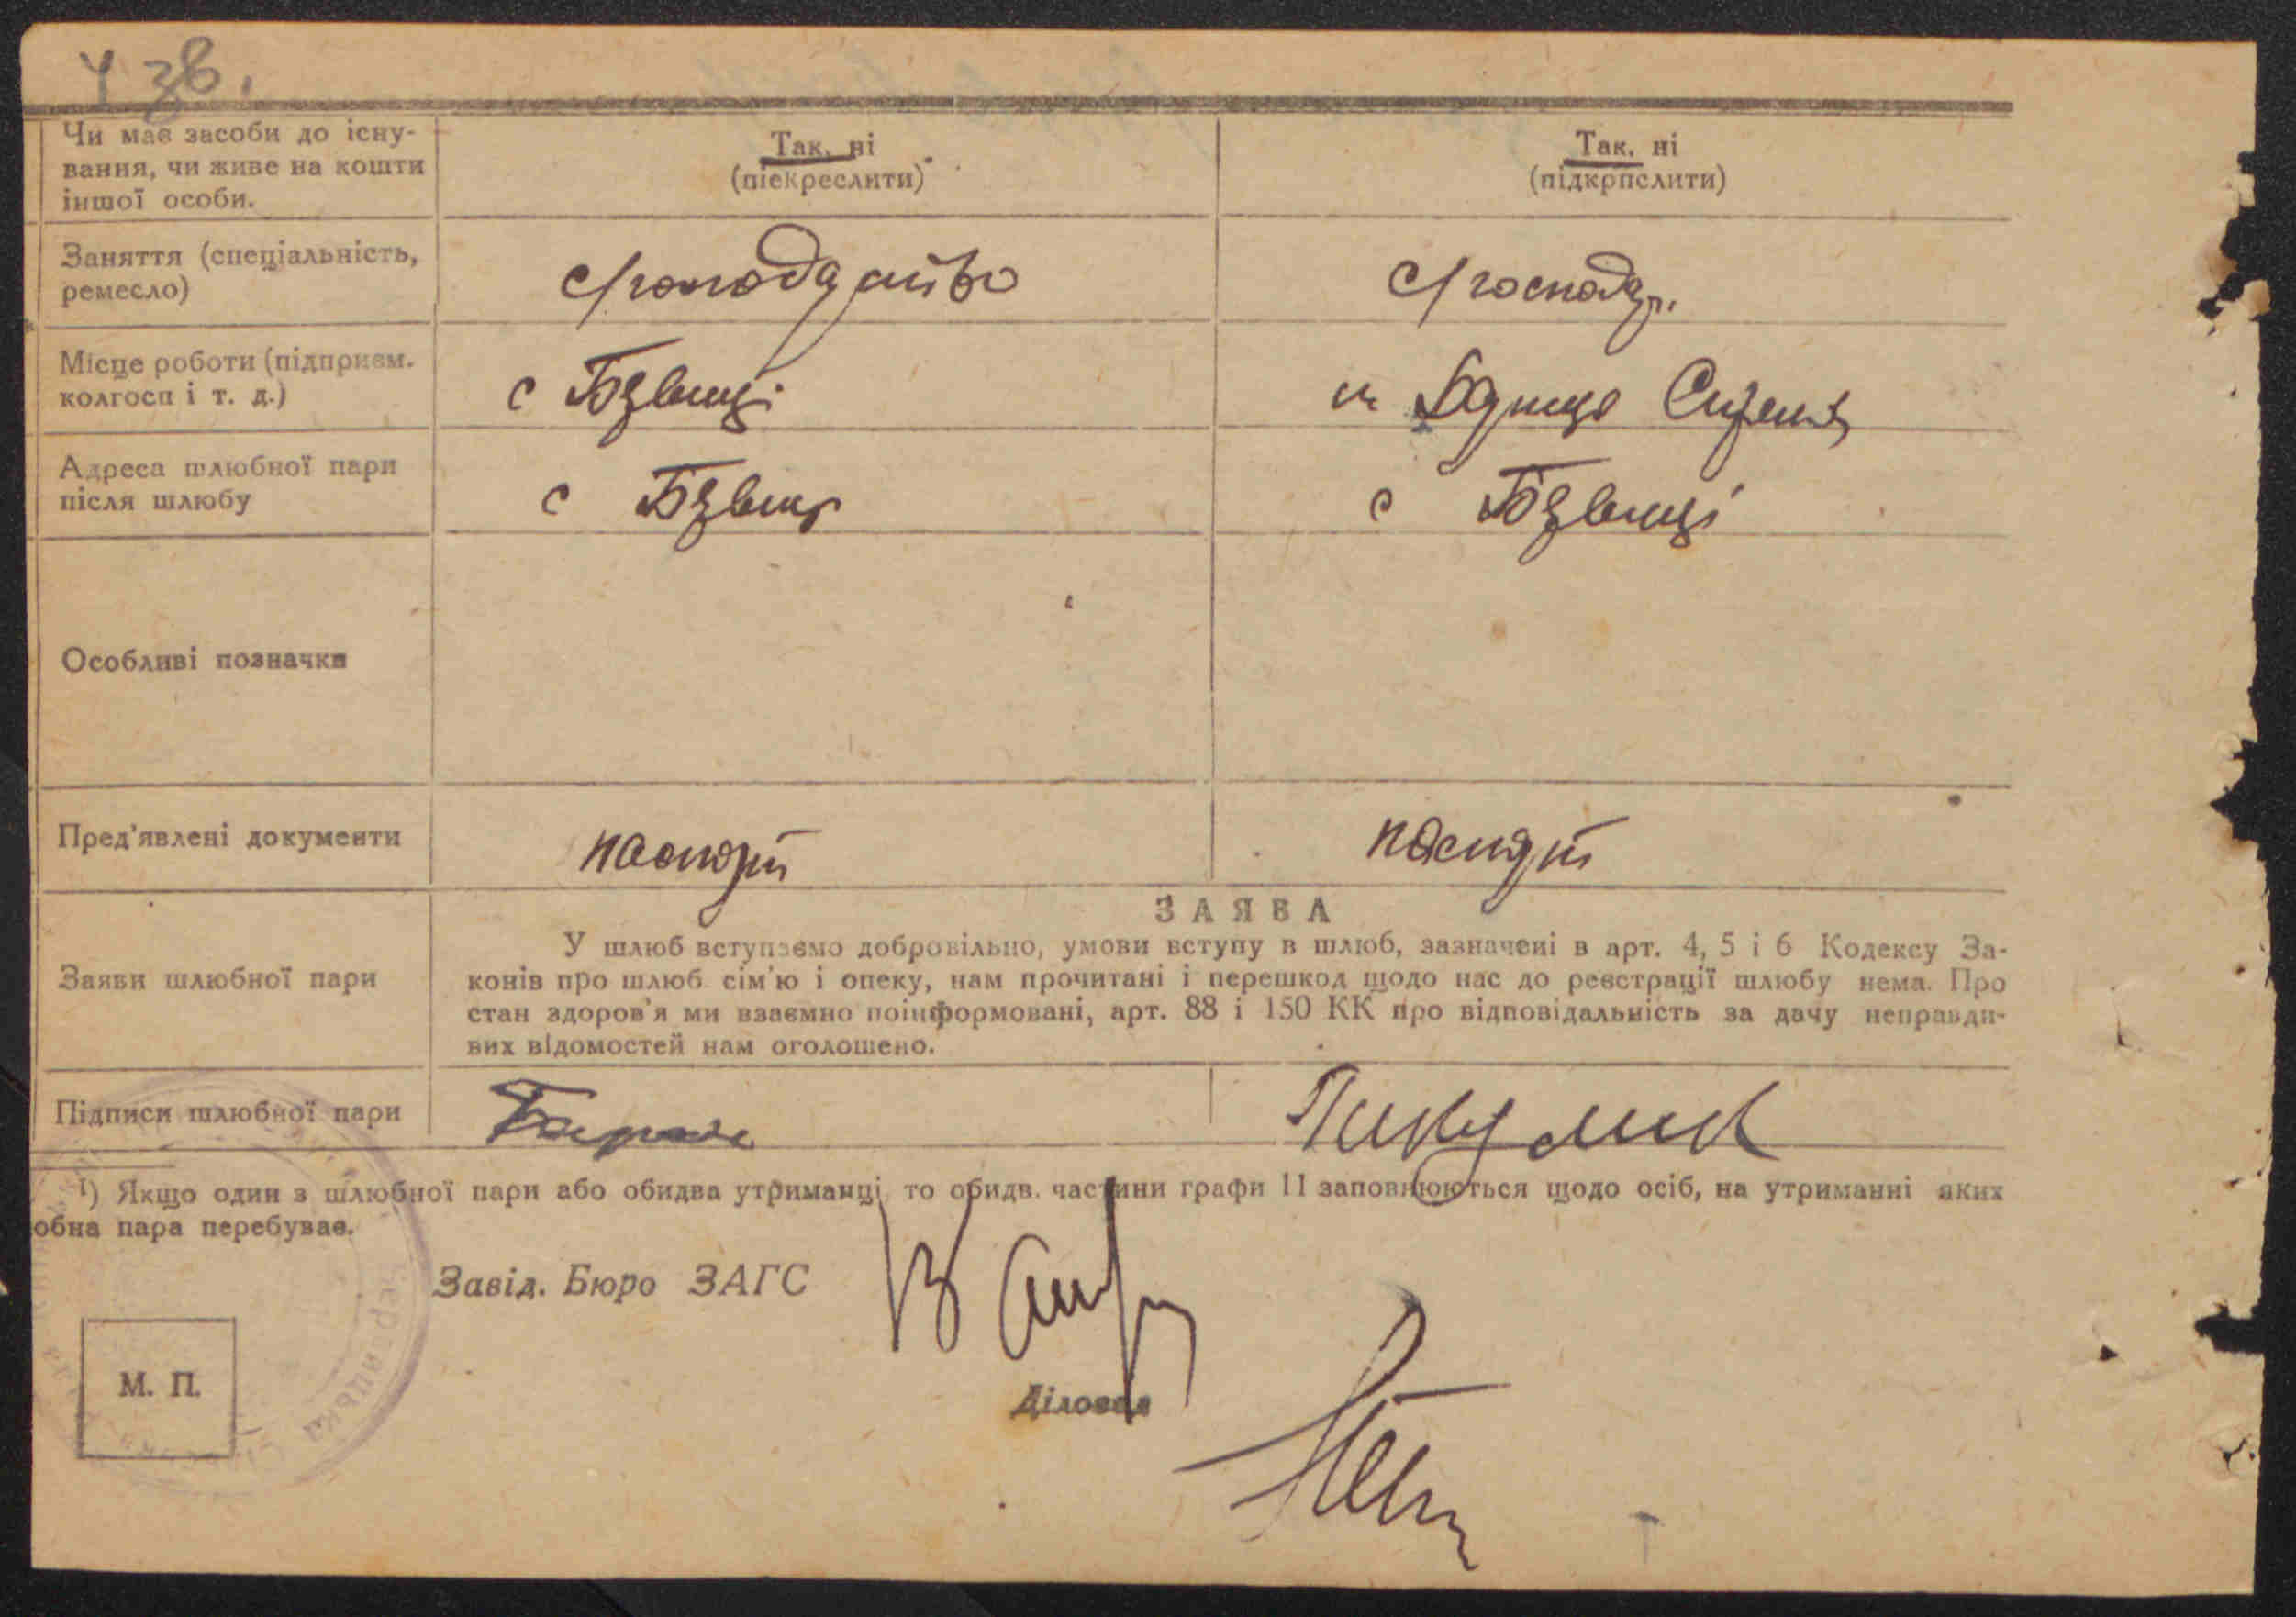 Ч зв.
Чи має засоби до існу-
вання, чи живе на кошти
іншої особи.
Так, ні
(піекреслити)
Так, ні
(підкрпслити)
Заняття (спеціальність,
ремесло)
с/господарство
с/господр.
Місце роботи (підприєм.
колгосп і т. д.)
с Бзвиці
Адреса шлюбної пари
після шлюбу
с
с Бзвиці
Особливі позначки
Пред'явлені документи
паспорт
паспорт
Заяви шлюбної пари
ЗАЯВА
У шлюб вступаємо добровільно, умови вступу в шлюб, зазначені в арт. 4, 5 і 6 Кодексу За-
конів про шлюб сім'ю і опеку, нам прочитані і перешкод щодо нас до реєстрації шлюбу нема. Про
стан здоров'я ми взаємно поінформовані, арт. 88 і 150 КК про відповідальність за дачу неправди-
вих відомостей нам оголошено.
Підписи шлюбної пари
Пикулик
1) Якщо один з шлюбної пари або обидва утриманці, то обидв. частини графи 11 заповнюються щодо осіб, на утриманні яких
обна пара перебуває.
Завід. Бюро ЗАГС
М. П.
Діловод